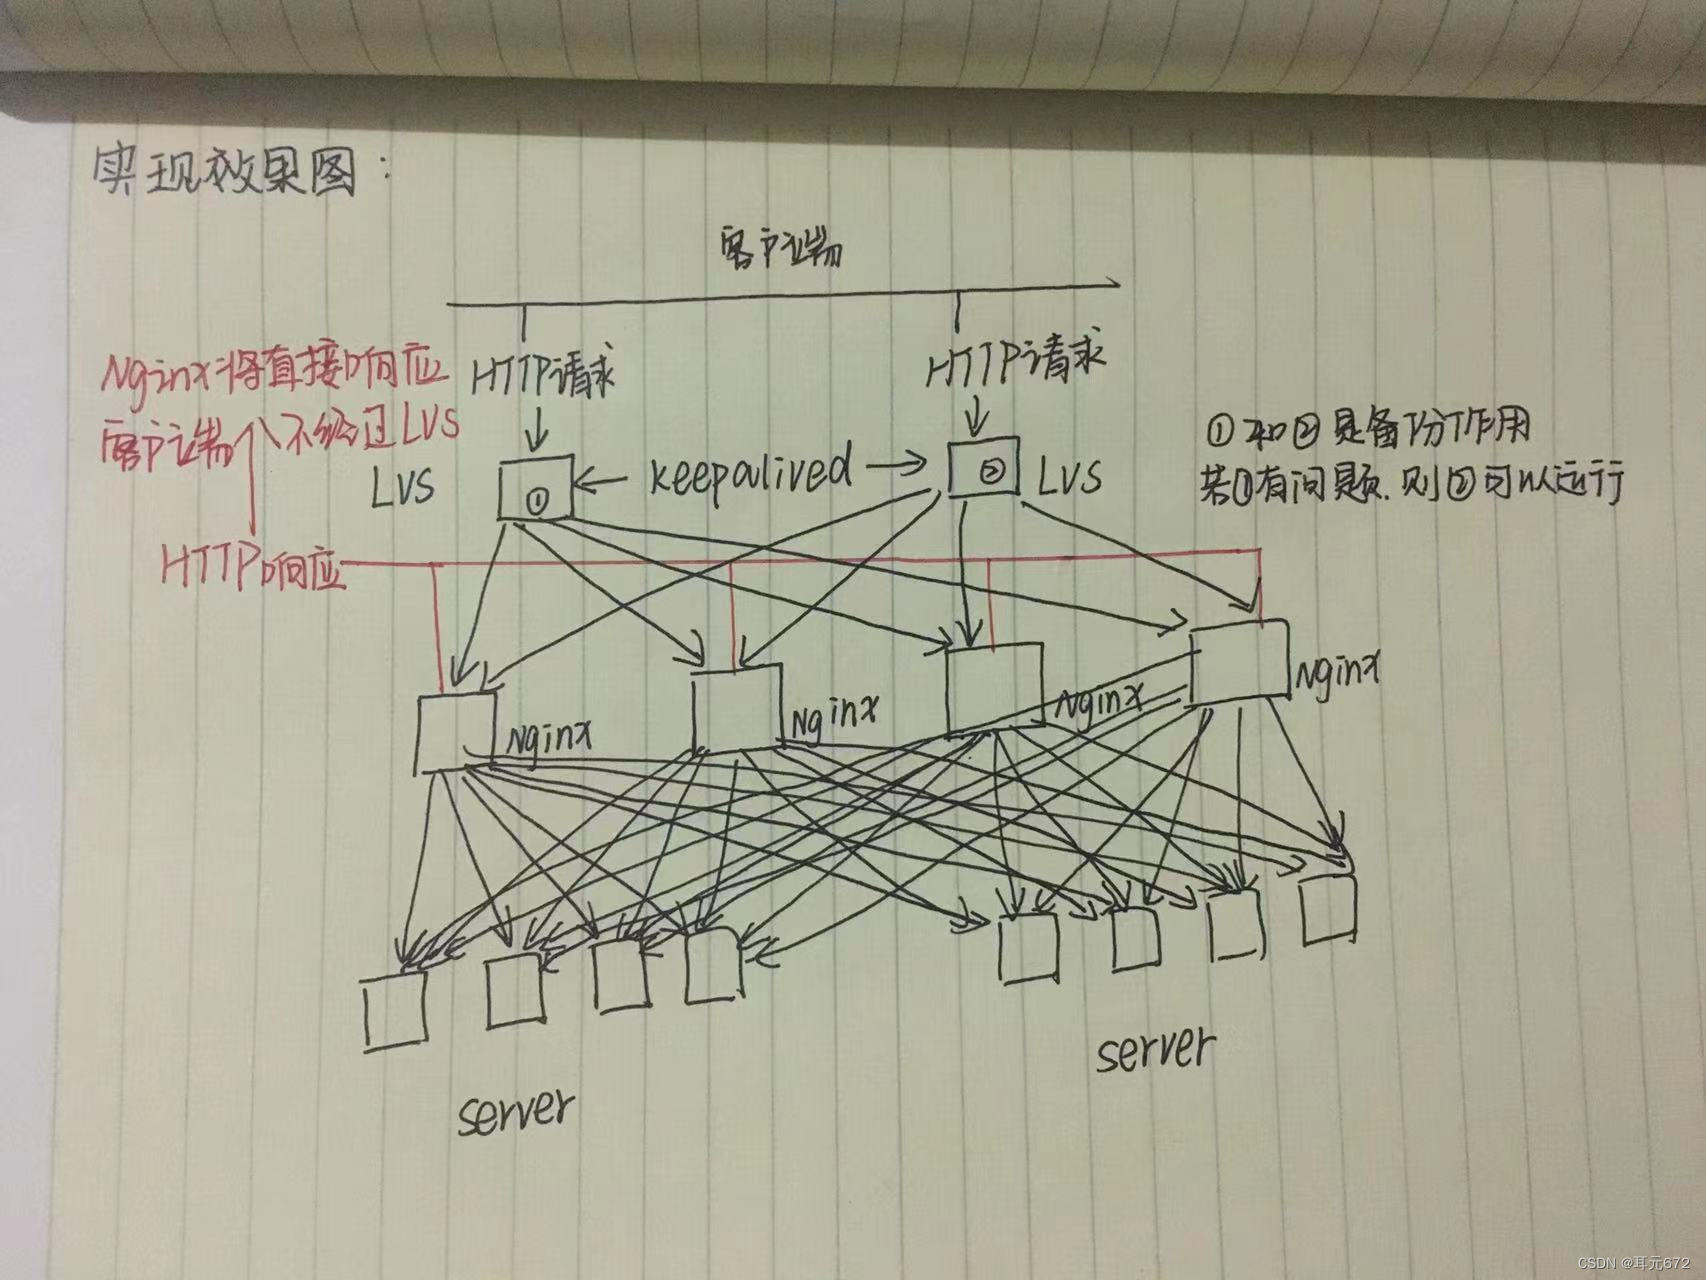 实现效果图：
客户端
HTTP请求
HTTP请求
Nginx将直接响应
客户端个不经过LVS
LVS
①
keepalived
②
LVS
①和②是备份作用
若①有问题.则②可以运行
HTTP响应
Nginx
Nginx
Nginx
Nginx
server
server
CSDN @耳元672